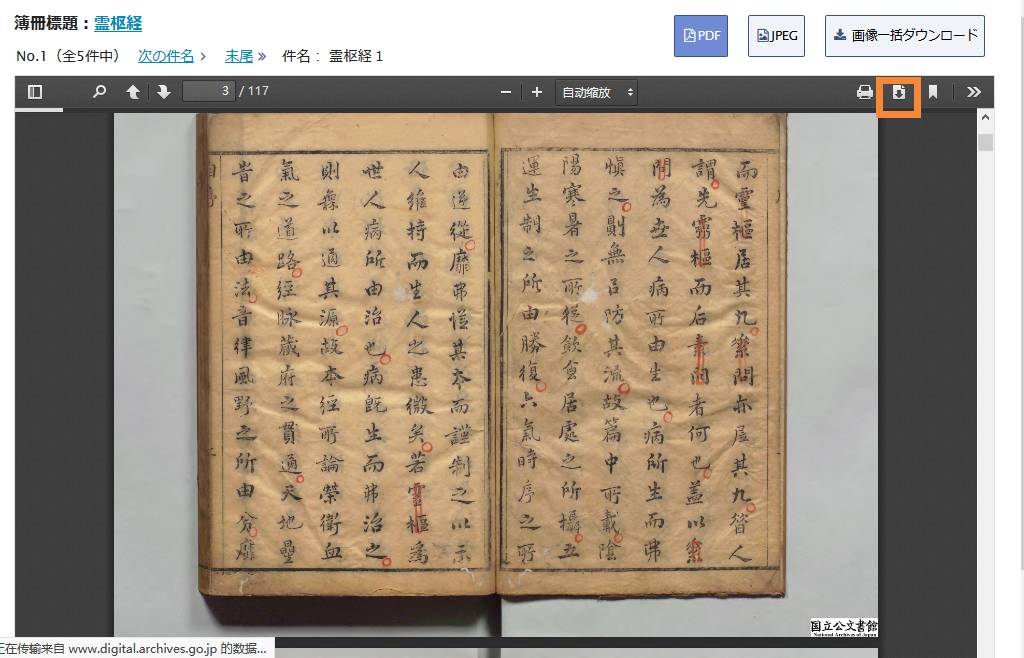 簿冊標題：霊枢経
PDF
JPEG
画像一括ダウンロード
No.1（全5件中） 次の件名 末尾 件名： 霊枢経１
3 / 117
自动缩放
而靈樞居其九素問亦居其九昔人
謂先靈樞而后素問者何也盖以素
問為世人病所由生也病所生而弗
慎之則無㠯防其流故篇中所載陰
陽寒暑之所從飲食居處之所攝五
運生制之所由勝復六氣時序之所
由逆從靡弗從其本而謹制之以示
人維持而生人之患微矣若靈樞為
世人病所由治也病旣生而弗治之
則無以通其源故本經所論榮衛血
氣之道路經脉藏府之貫通天地
昔之所由法音律風野之所由分靡
国立公文書館
National Archives of Japan
正在传输来自 www.digital.archives.go.jp 的数据...